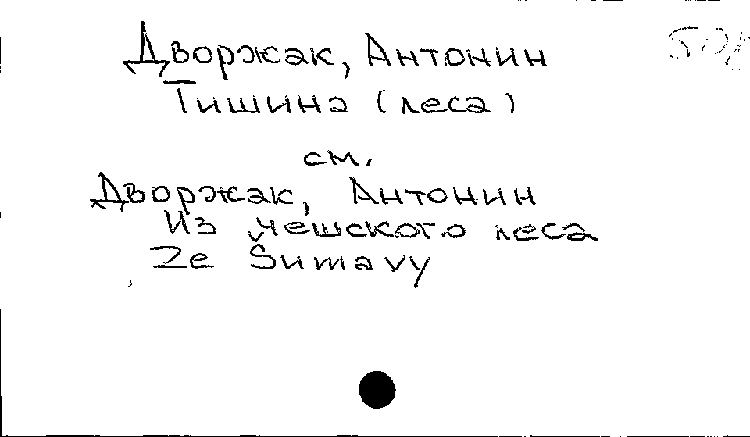 Дворжак, Антонин
Тишина (леса)
см.
Дворжак, Антонин
Из чешского леса
Ze Šumavy